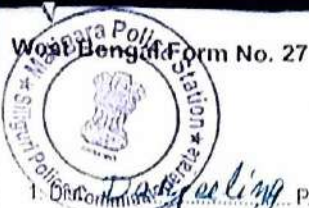 West Bengal Form No. 27
Matigara Police Station
Siliguri Police Commissionerate
1. Dist. Darjeeling P